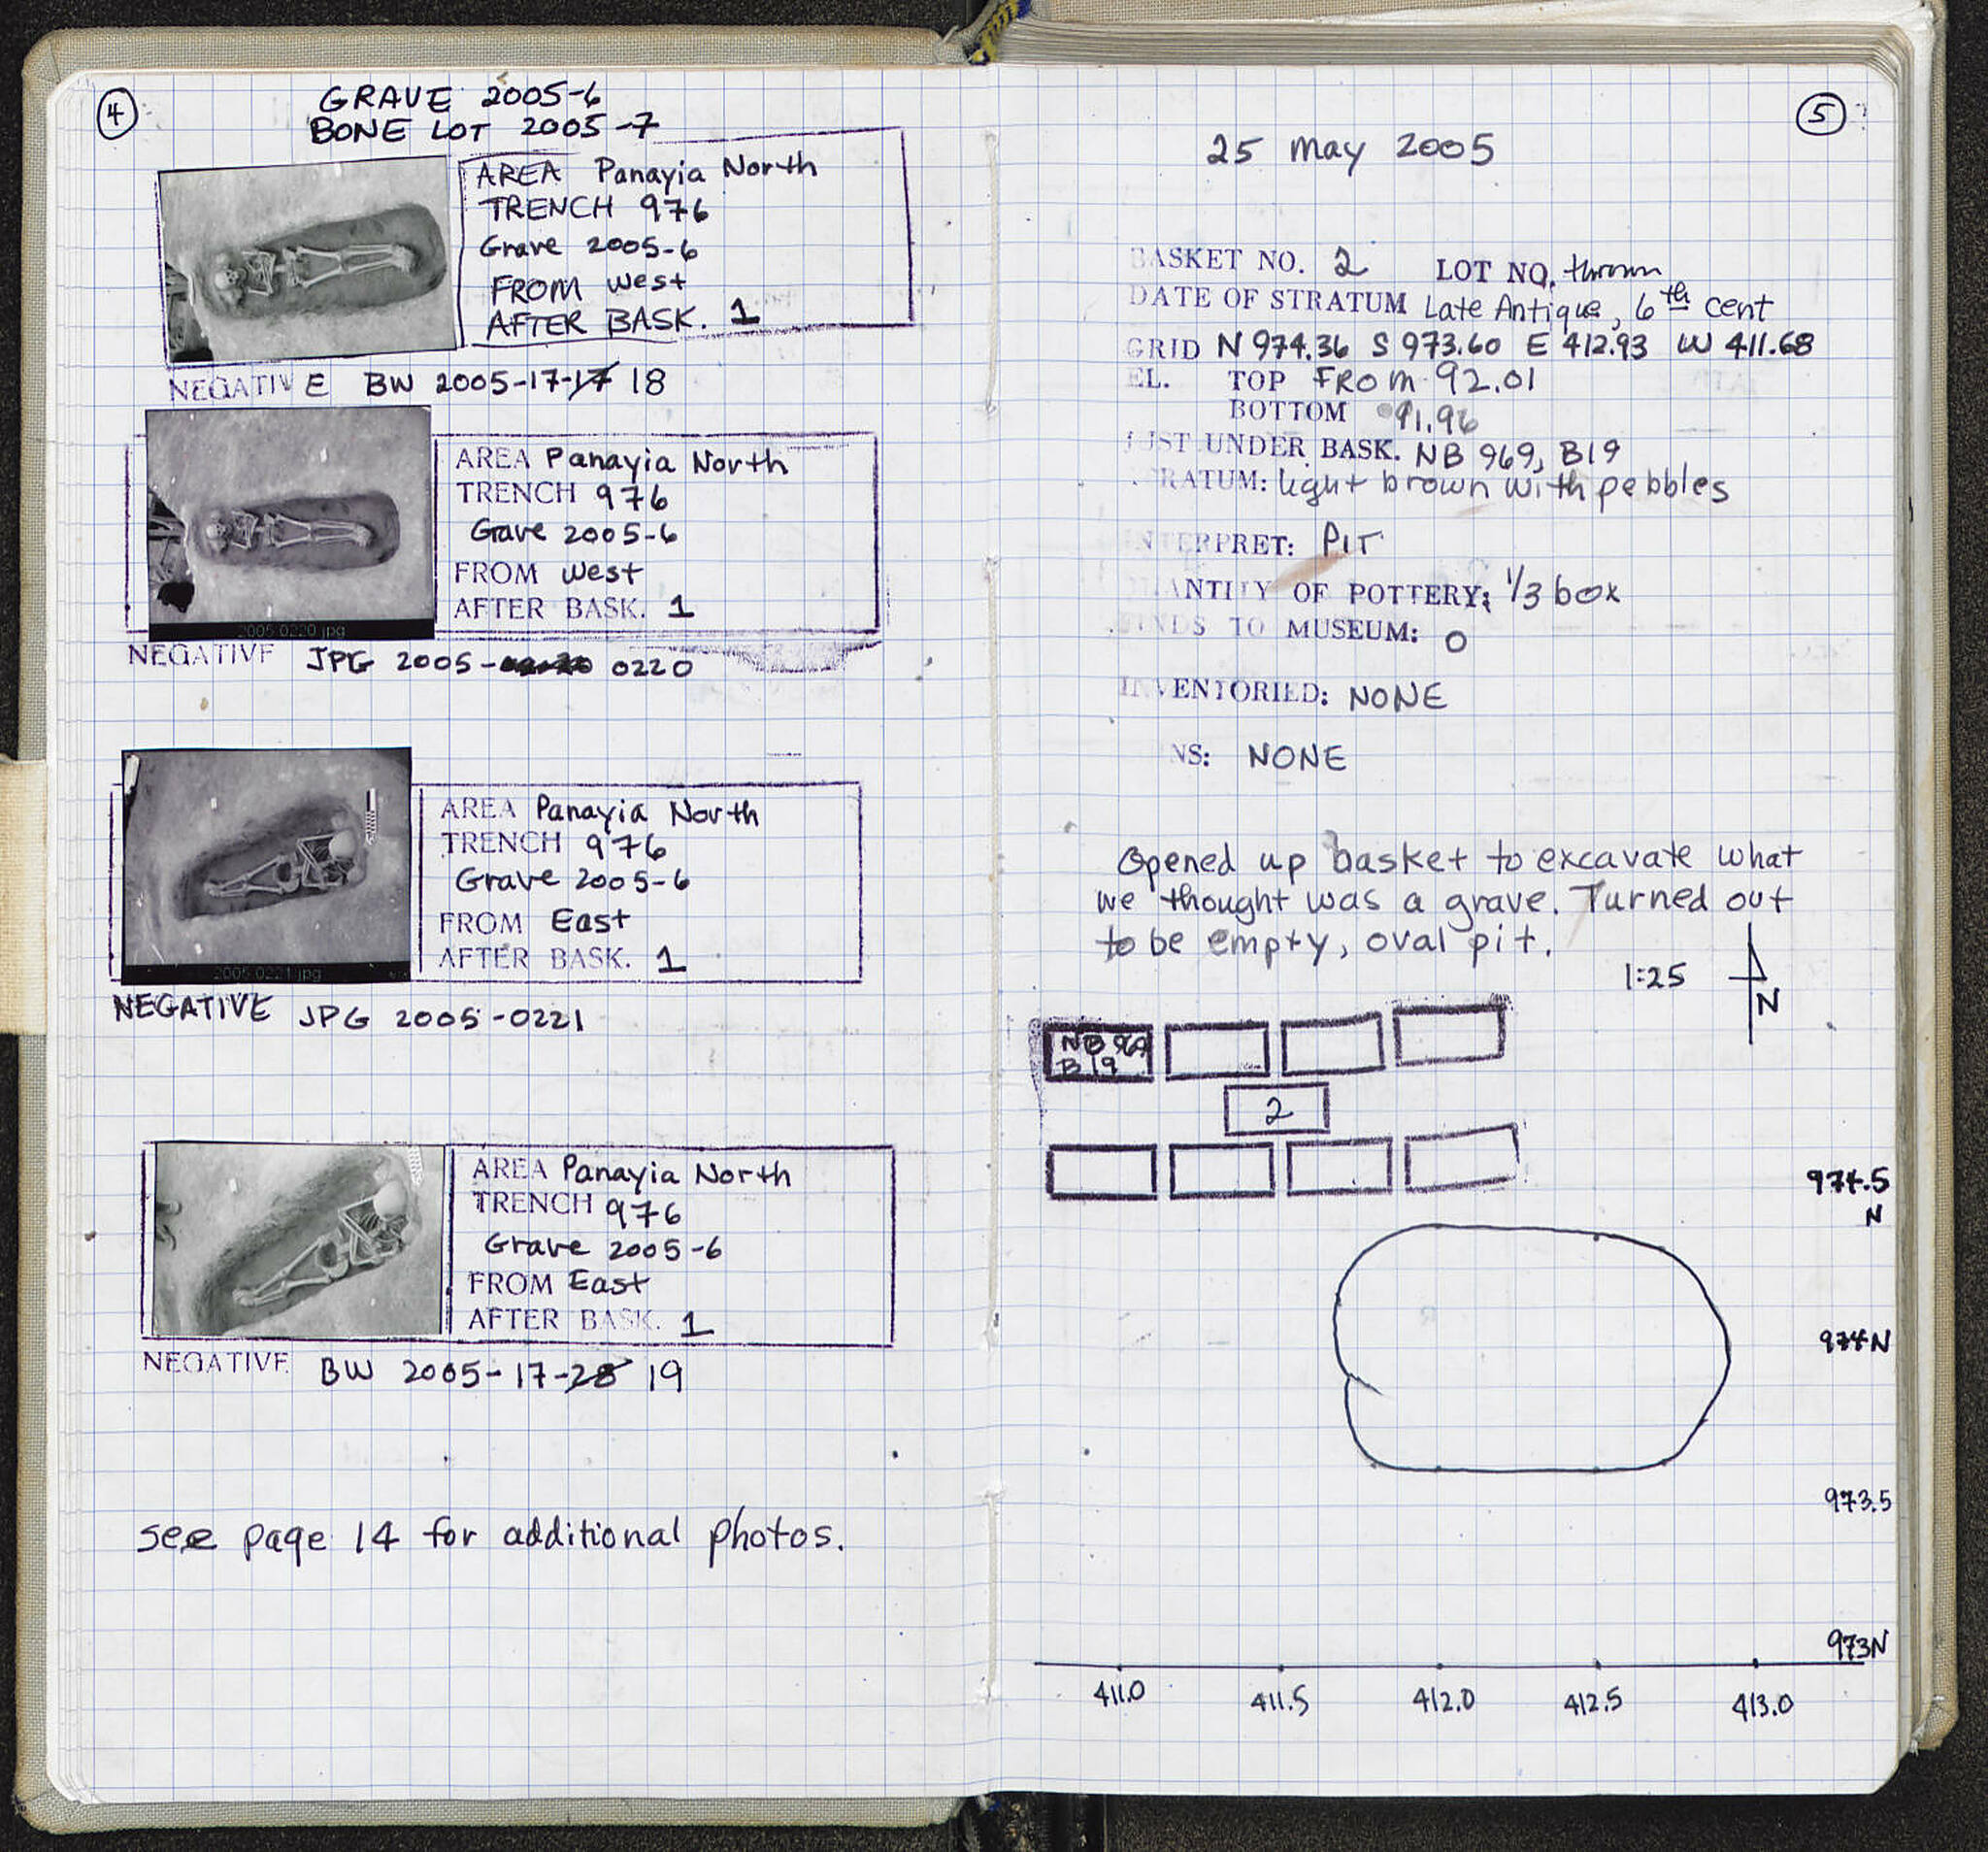 4
GRAVE 2005-6
BONE LOT 2005-7
AREA Panayia North
TRENCH 976
Grave 2005-6
FROM west
AFTER BASK. 1
NEGATIVE BW 2005-17-17 18
AREA Panayia North
TRENCH 976
Grave 2005-6
FROM west
AFTER BASK. 1
2005 0220.jpg
NEGATIVE JPG 2005- 0220
AREA Panayia North
TRENCH 976
Grave 2005-6
FROM East
AFTER BASK. 1
2005 0221.jpg
NEGATIVE JPG 2005-0221
AREA Panayia North
TRENCH 976
Grave 2005-6
FROM East
AFTER BASK. 1
NEGATIVE BW 2005-17-28 19
see page 14 for additional photos.
5
25 May 2005
BASKET NO. 2 LOT NO. thrown
DATE OF STRATUM Late Antique, 6th cent
GRID N 974.36 S 973.60 E 412.93 W 411.68
EL. TOP FROM 92.01
BOTTOM 91.96
JUST UNDER BASK. NB 969, B19
STRATUM: light brown with pebbles
INTERPRET: PIT
QUANTITY OF POTTERY: 1/3 box
FINDS TO MUSEUM: 0
INVENTORIED: NONE
NS: NONE
Opened up basket to excavate what
we thought was a grave. Turned out
to be empty, oval pit.
1:25 N
NB 969
B 19
2
974.5
N
974N
973.5
973N
411.0 411.5 412.0 412.5 413.0